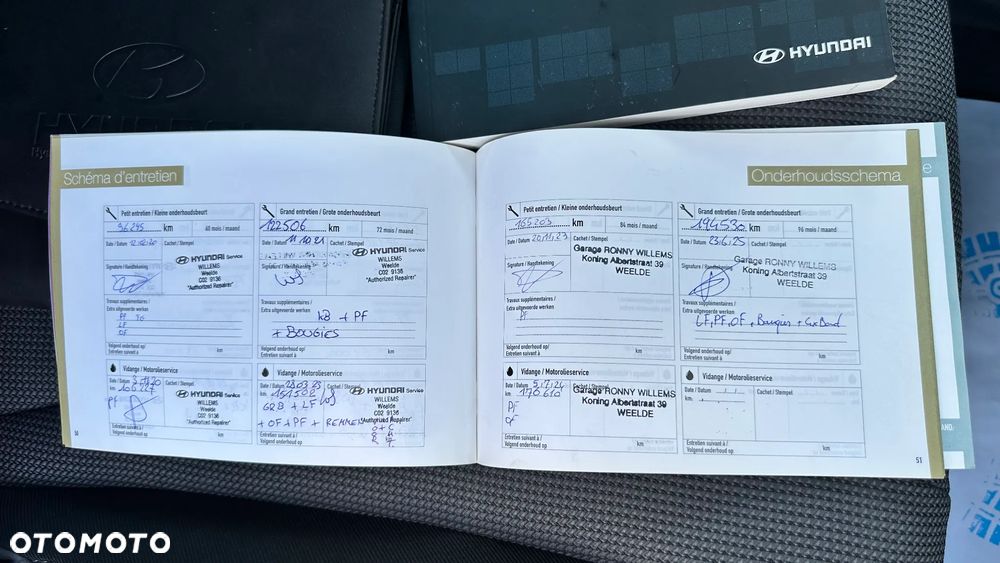 HYUNDAI
Schéma d'entretien
Petit entretien / Kleine onderhoudsbeurt
96295 km
60 mois / maand
Date / Datum 12.02.20
Cachet / Stempel
HYUNDAI Service
WILLEMS
Weelde
C02 9136
"Authorized Repairer"
Signature / Handtekening
Travaux supplémentaires /
Extra uitgevoerde werken
PF
LF
OF
Volgend onderhoud op/
Entretien suivant à
km
Grand entretien / Grote onderhoudsbeurt
122506 km
72 mois / maand
Date / Datum 11.10.21
Cachet / Stempel
HYUNDAI Service
WILLEMS
Weelde
C02 9136
"Authorized Repairer"
Signature / Handtekening
Travaux supplémentaires /
Extra uitgevoerde werken
+ PF
+ BOUGIES
Volgend onderhoud op/
Entretien suivant à
km
Vidange / Motorolieservice
Date / Datum
Cachet / Stempel
km
PF
HYUNDAI Service
WILLEMS
Weelde
C02 9136
"Authorized Repairer"
Entretien suivant à /
Volgend onderhoud op
km
Vidange / Motorolieservice
Date / Datum 28.03.23
Cachet / Stempel
km 151508
GRB + LF
+ OF + PF + REMMEN
HYUNDAI Service
WILLEMS
Weelde
C02 9136
"Authorized Repairer"
Entretien suivant à /
Volgend onderhoud op
km
50
Onderhoudsschema
Petit entretien / Kleine onderhoudsbeurt
165203 km
84 mois / maand
Date / Datum 20.11.23
Cachet / Stempel
Garage RONNY WILLEMS
Koning Albertstraat 39
WEELDE
Signature / Handtekening
Travaux supplémentaires /
Extra uitgevoerde werken
PF
Volgend onderhoud op/
Entretien suivant à
km
Grand entretien / Grote onderhoudsbeurt
194530 km
96 mois / maand
Date / Datum 23.6.25
Cachet / Stempel
Garage RONNY WILLEMS
Koning Albertstraat 39
WEELDE
Signature / Handtekening
Travaux supplémentaires /
Extra uitgevoerde werken
LF, PF, OF, Bougies +
Volgend onderhoud op/
Entretien suivant à
km
Vidange / Motorolieservice
Date / Datum 5.7.24
Cachet / Stempel
km 170610
PF
OF
Garage RONNY WILLEMS
Koning Albertstraat 39
WEELDE
Entretien suivant à /
Volgend onderhoud op
km
Vidange / Motorolieservice
Date / Datum
Cachet / Stempel
km
Entretien suivant à /
Volgend onderhoud op
km
51
OTOMOTO